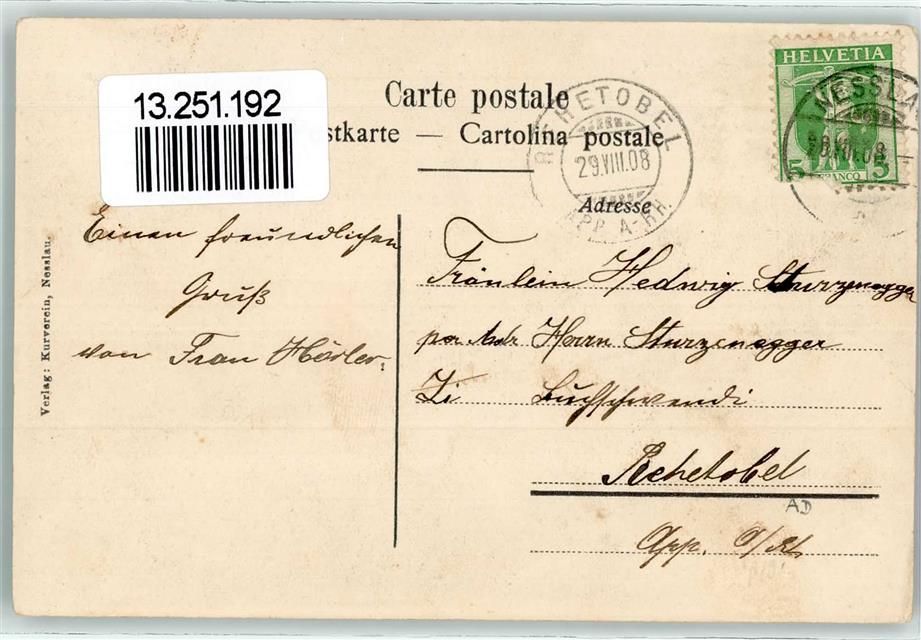 13.251.192
Carte postale
stkarte — Cartolina postale
HELVETIA
5 5
FRANCO
NESSLA
29.VIII.08
REHETOBEL
29.VIII.08
APP A-RH
Adresse
Einen freundlichen
Gruß
von Frau Hörler.
Fräulein Hedwig Sturzenegger
per Adr Herrn Sturzenegger
Zi Buchschwendi
Rehetobel
AD
App. A/Rh
Verlag: Kurverein, Nesslau.